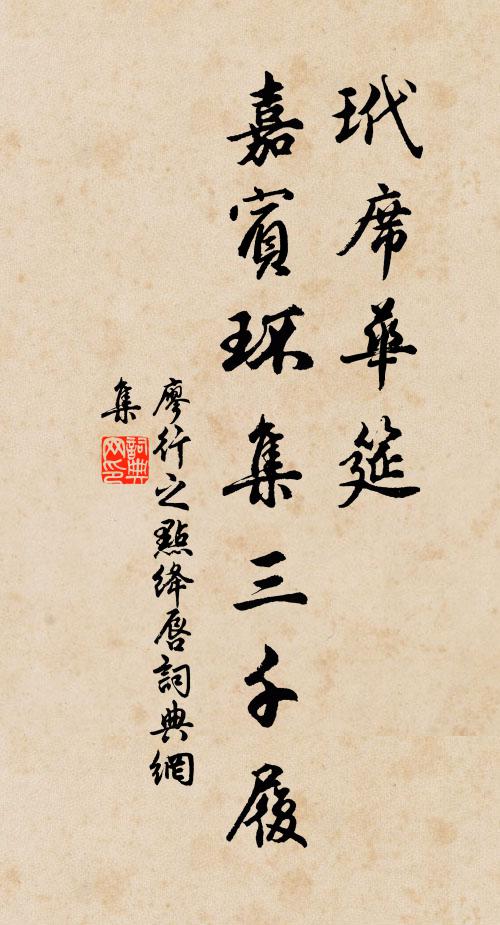 玳席華筵
嘉賓環集三千履
廖行之點絳唇詞典網
集
詞典網印